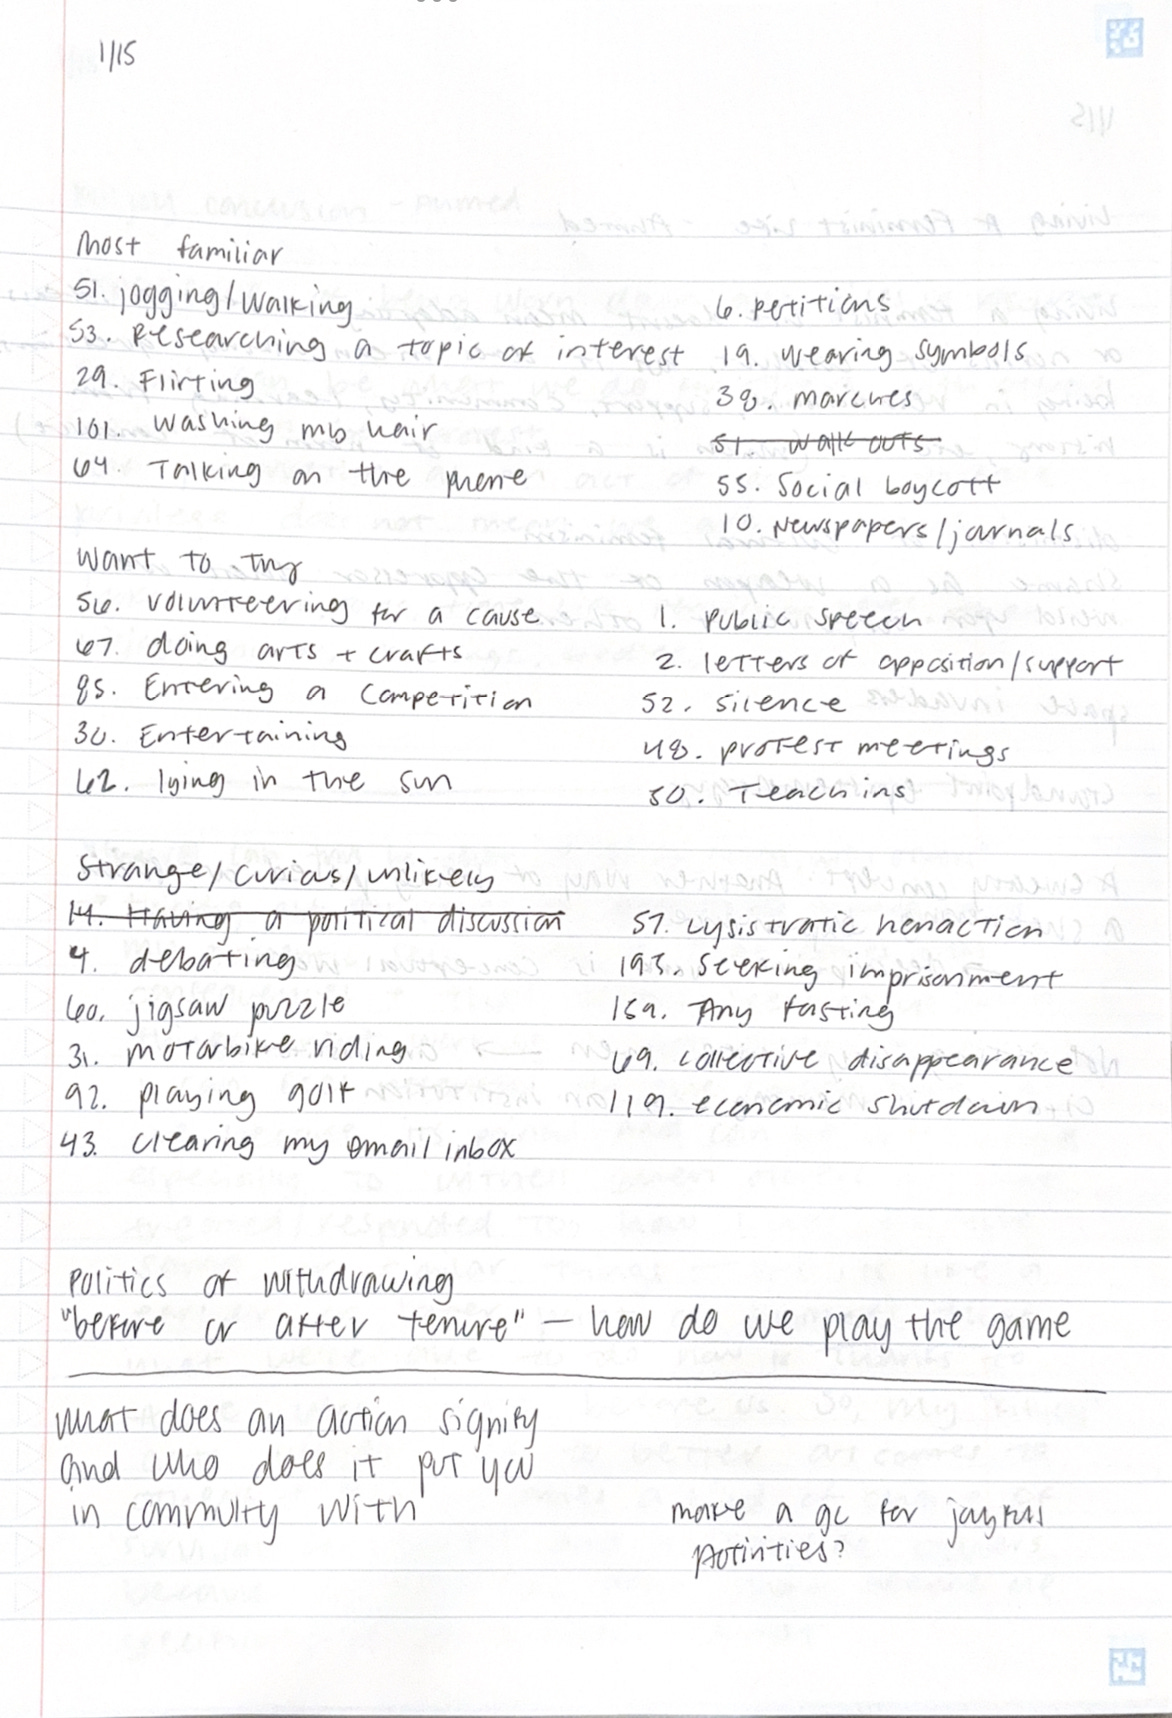 1/15
Most familiar
51. jogging/walking
53. Researching a topic of interest
29. Flirting
101. Washing mb hair
64. Talking on the phone
6. petitions
19. wearing symbols
38. marches
51. walk outs
55. Social boycott
10. Newspapers/journals
Want to try
56. volunteering for a cause
67. doing arts + crafts
85. Entering a competition
30. Entertaining
62. lying in the sun
1. public speech
2. letters of opposition/support
52. silence
48. protest meetings
50. Teach ins
Strange/curious/unlikely
14. Having a political discussion
4. debating
60. jigsaw puzzle
31. motorbike riding
92. playing golf
43. clearing my email inbox
57. Lysistratic nonaction
193. seeking imprisonment
159. Any fasting
69. collective disappearance
119. economic shutdown
Politics of withdrawing
"before or after tenure" – how do we play the game
what does an action signify
and who does it put you
in commuity with
make a gc for joyful
activities?